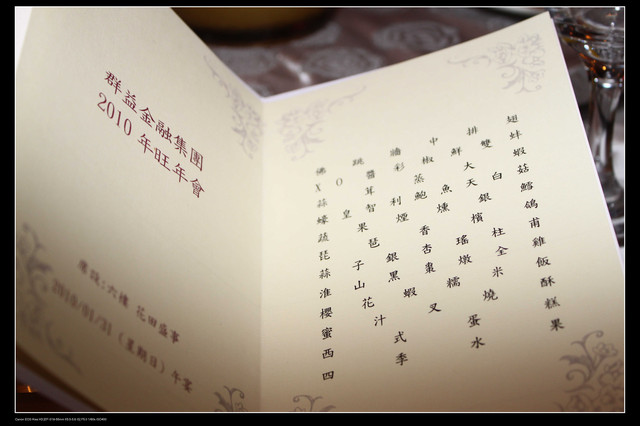 群益金融集團
2010 年旺年會
席設:六樓 花田盛事
2010/01/31 (星期日) 午宴
佛跳牆中排翅
XO醬彩椒鮮雙蚌
蒜茸蒸大蝦
蠔皇智利鮑魚天白菇
蔬果煙燻銀鱈
琵琶香檳鴿
蒜子銀杏瑤柱甫
淮山黑棗燉全雞
櫻花蝦糯米飯
蜜汁叉燒酥
西式蛋糕
四季水果